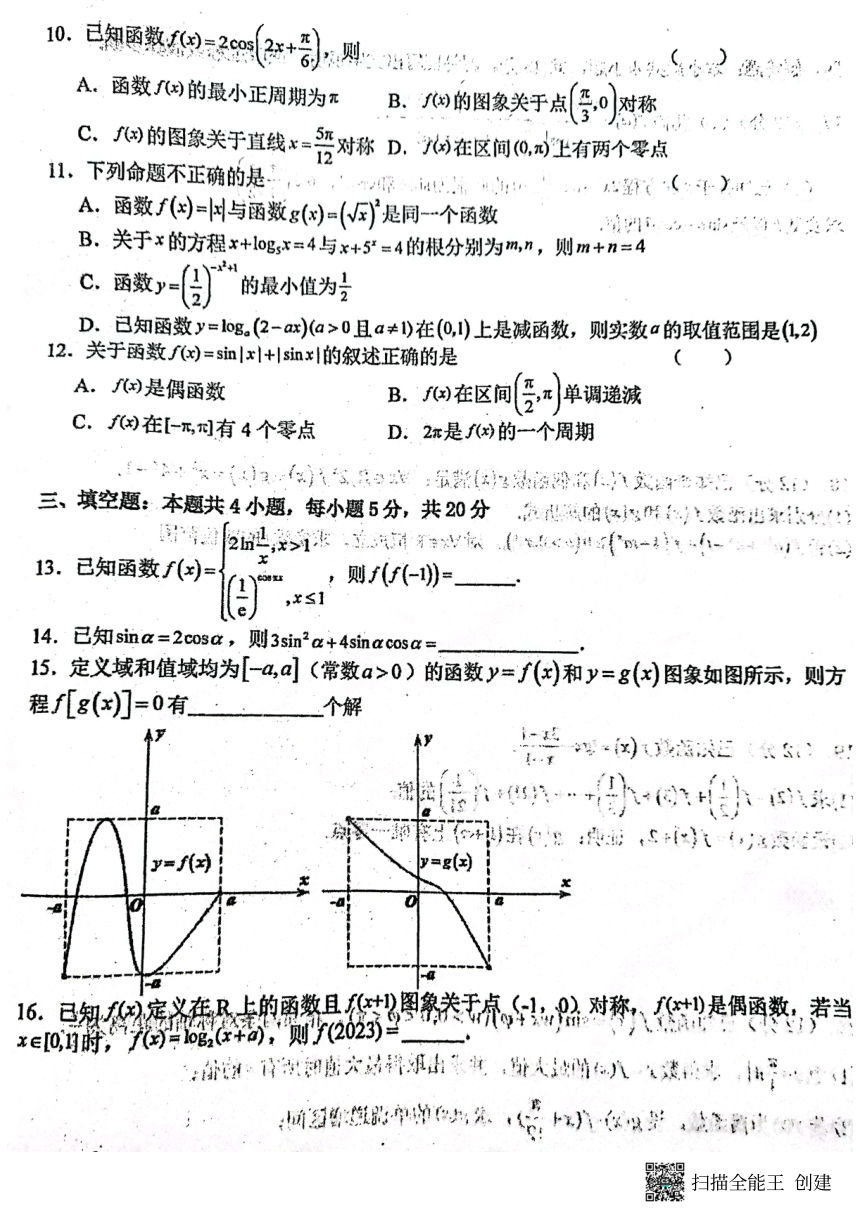 10．已知函数f(x)=2cos(2x+π/6)，则（　　）
A．函数f(x)的最小正周期为π　B．f(x)的图象关于点(π/3,0)对称
C．f(x)的图象关于直线x=5π/12对称　D．f(x)在区间(0,π)上有两个零点
11．下列命题不正确的是（　　）
A．函数f(x)=|x|与函数g(x)=(√x)²是同一个函数
B．关于x的方程x+log₅x=4与x+5ˣ=4的根分别为m,n，则m+n=4
C．函数y=(1/2)^(-x²+1)的最小值为1/2
D．已知函数y=logₐ(2-ax)(a>0且a≠1)在(0,1)上是减函数，则实数a的取值范围是(1,2)
12．关于函数f(x)=sin|x|+|sinx|的叙述正确的是（　　）
A．f(x)是偶函数　B．f(x)在区间(π/2,π)单调递减
C．f(x)在[-π,π]有4个零点　D．2π是f(x)的一个周期
三、填空题：本题共4小题，每小题5分，共20分
13．已知函数f(x)={2ln(1/x),x>1；(1/e)^(cosπx),x≤1，则f(f(-1))=______．
14．已知sinα=2cosα，则3sin²α+4sinαcosα=____________．
15．定义域和值域均为[-a,a]（常数a>0）的函数y=f(x)和y=g(x)图象如图所示，则方
程f[g(x)]=0有____________个解
y
a
y=f(x)
x
-a O a
-a
y
a
y=g(x)
x
-a O a
-a
16．已知f(x)定义在R上的函数且f(x+1)图象关于点（-1，0）对称，f(x+1)是偶函数，若当
x∈[0,1]时，f(x)=log₂(x+a)，则f(2023)=______．
扫描全能王 创建